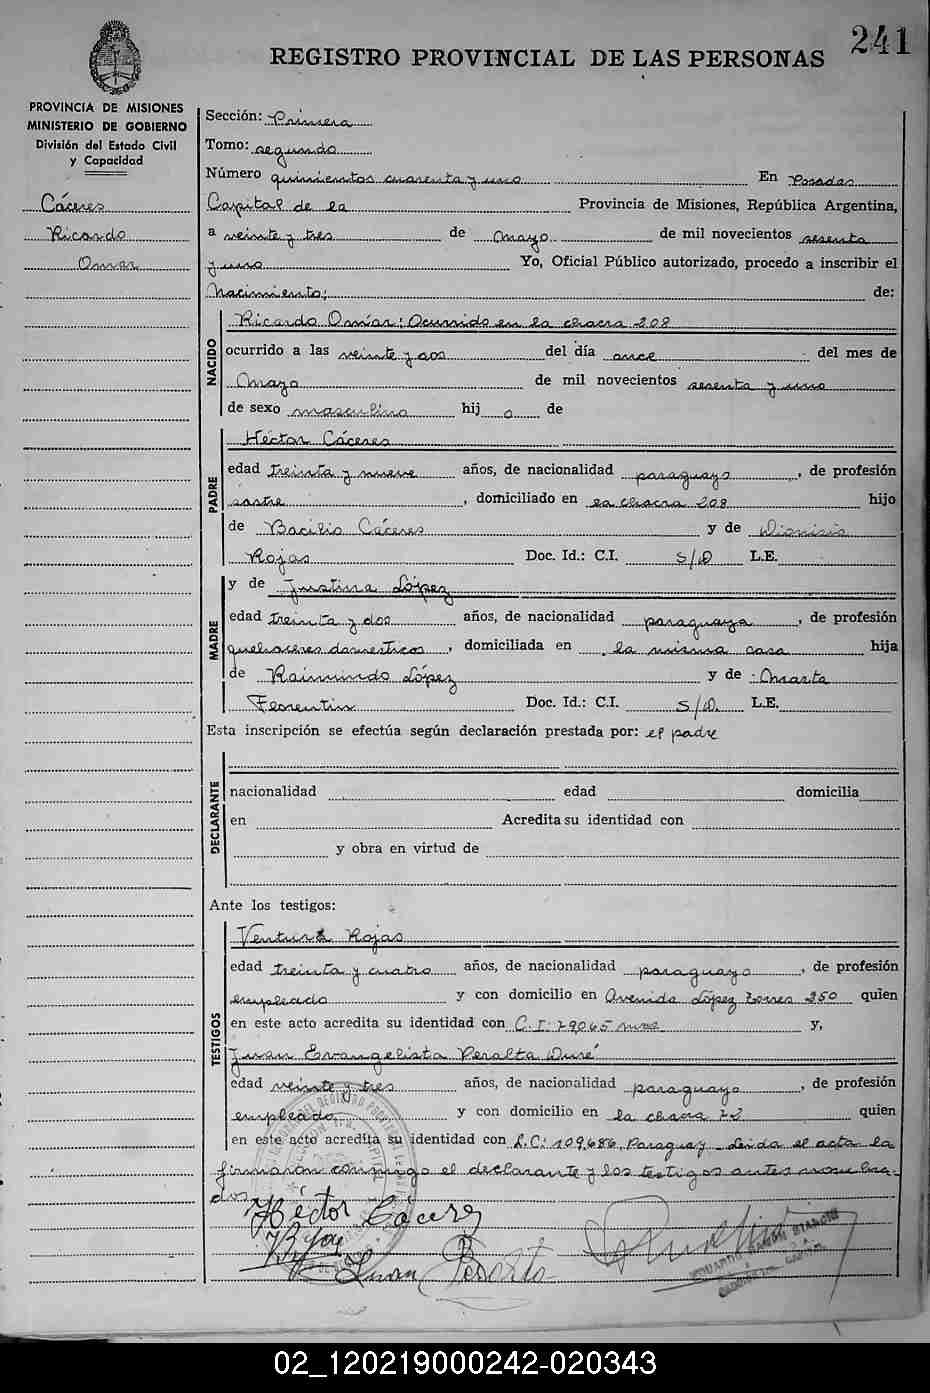 241
REGISTRO PROVINCIAL DE LAS PERSONAS
PROVINCIA DE MISIONES
MINISTERIO DE GOBIERNO
División del Estado Civil
y Capacidad
Cáceres
Ricardo
Omar
Sección: Primera
Tomo: segundo
Número quinientos cuarenta y uno En Posadas
Capital de la Provincia de Misiones, República Argentina,
a veinte y tres de mayo de mil novecientos sesenta
y uno Yo, Oficial Público autorizado, procedo a inscribir el
Nacimiento: de:
NACIDO
Ricardo Omar: Ocurrido en la chacra 208
ocurrido a las veinte y dos del día once del mes de
Mayo de mil novecientos sesenta y uno
de sexo masculino hij o de
PADRE
Héctor Cáceres
edad treinta y nueve años, de nacionalidad paraguayo, de profesión
sastre, domiciliado en la chacra 208 hijo
de Bacilio Cáceres y de Dionisia
Rojas Doc. Id.: C.I. S/D L.E.
MADRE
y de Justina López
edad treinta y dos años, de nacionalidad paraguaya, de profesión
quehaceres domesticos, domiciliada en la misma casa hija
de Raimundo López y de Marta
Florentin Doc. Id.: C.I. S/D. L.E.
Esta inscripción se efectúa según declaración prestada por: el padre
DECLARANTE
nacionalidad edad domicilia
en Acredita su identidad con
y obra en virtud de
Ante los testigos:
TESTIGOS
Ventura Rojas
edad treinta y cuatro años, de nacionalidad paraguayo, de profesión
empleado y con domicilio en Avenida López Torres 250 quien
en este acto acredita su identidad con C.I: 79,065 mnes y,
Juan Evangelista Peralta Duré
edad veinte y tres años, de nacionalidad paraguayo, de profesión
empleado y con domicilio en la chacra 72 quien
en este acto acredita su identidad con L.C: 109,686, Paraguay. Leida el acta la
firmaron conmigo el declarante y los testigos antes nombra-
dos
Héctor Cáceres
Juan Peralta
02_120219000242-020343